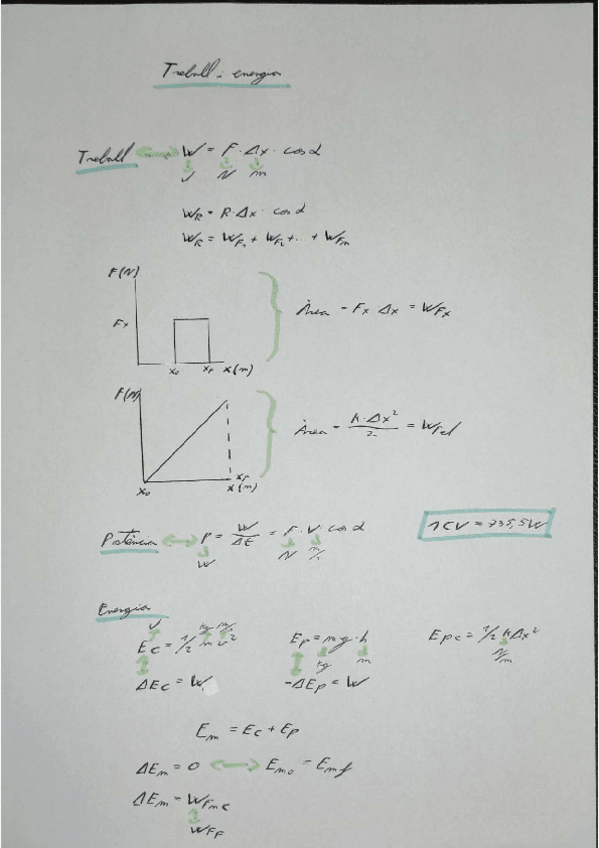 Treball i energia
Treball ↔ W = F · Δx · cos α
J N m
W_R = R · Δx · cos α
W_R = W_F₁ + W_F₂ + ... + W_Fₙ
F(N)
Fx
x₀ x_f x(m)
Àrea = Fx Δx = W_Fx
F(N)
x₀ x_f
x(m)
Àrea = k · Δx² / 2 = W_Fel
Potència ↔ P = W / Δt = F · V · cos α
W N m/s
1 CV = 735,5 W
Energia
J kg m/s
Ec = 1/2 m v² Ep = m g · h Epe = 1/2 k Δx²
kg m N/m
ΔEc = W -ΔEp = W
Em = Ec + Ep
ΔEm = 0 ↔ Em₀ = Emf
ΔEm = W_Fnc
W_FF